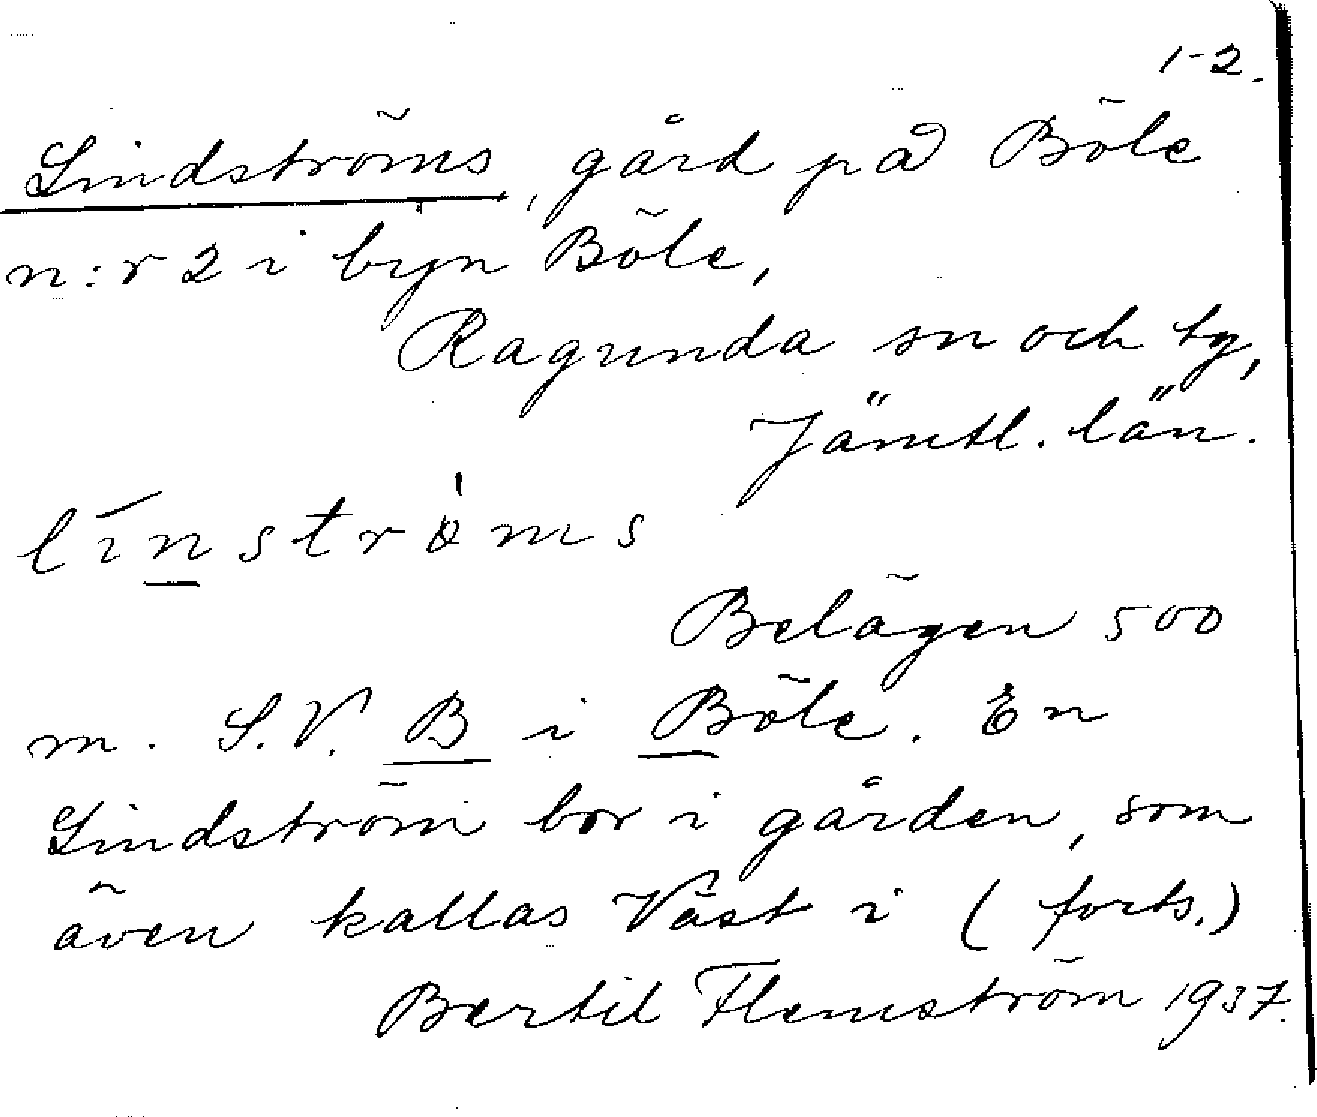 1-2.
Lindströms, gård på Böle
n:r 2 i byn Böle,
Ragunda sn och tg,
Jämtl. län.
línströ̀ms
Belägen 500
m. S.V. B i Böle. En
Lindström bor i gården, som
även kallas Väst i (forts.)
Bertil Flemström 1937.